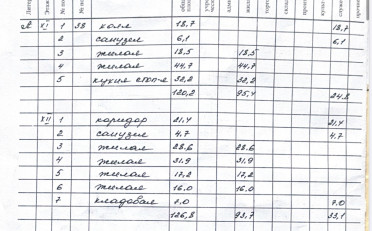 А XI 1 38 холл 18,7 18,7
2 санузел 6,1 6,1
3 жилая 18,5 18,5
4 жилая 44,7 44,7
5 кухня столя 32,2 32,2
120,2 95,4 24.8
XII 1 коридор 21,4 21,4
2 санузел 4.7 4,7
3 жилая 28.6 28.6
4 жилая 31,9 31,9
5 жилая 17,2 17,2
6 жилая 16.0 16.0
7 кладовая 7.0 7.0
126,8 93,7 33,1